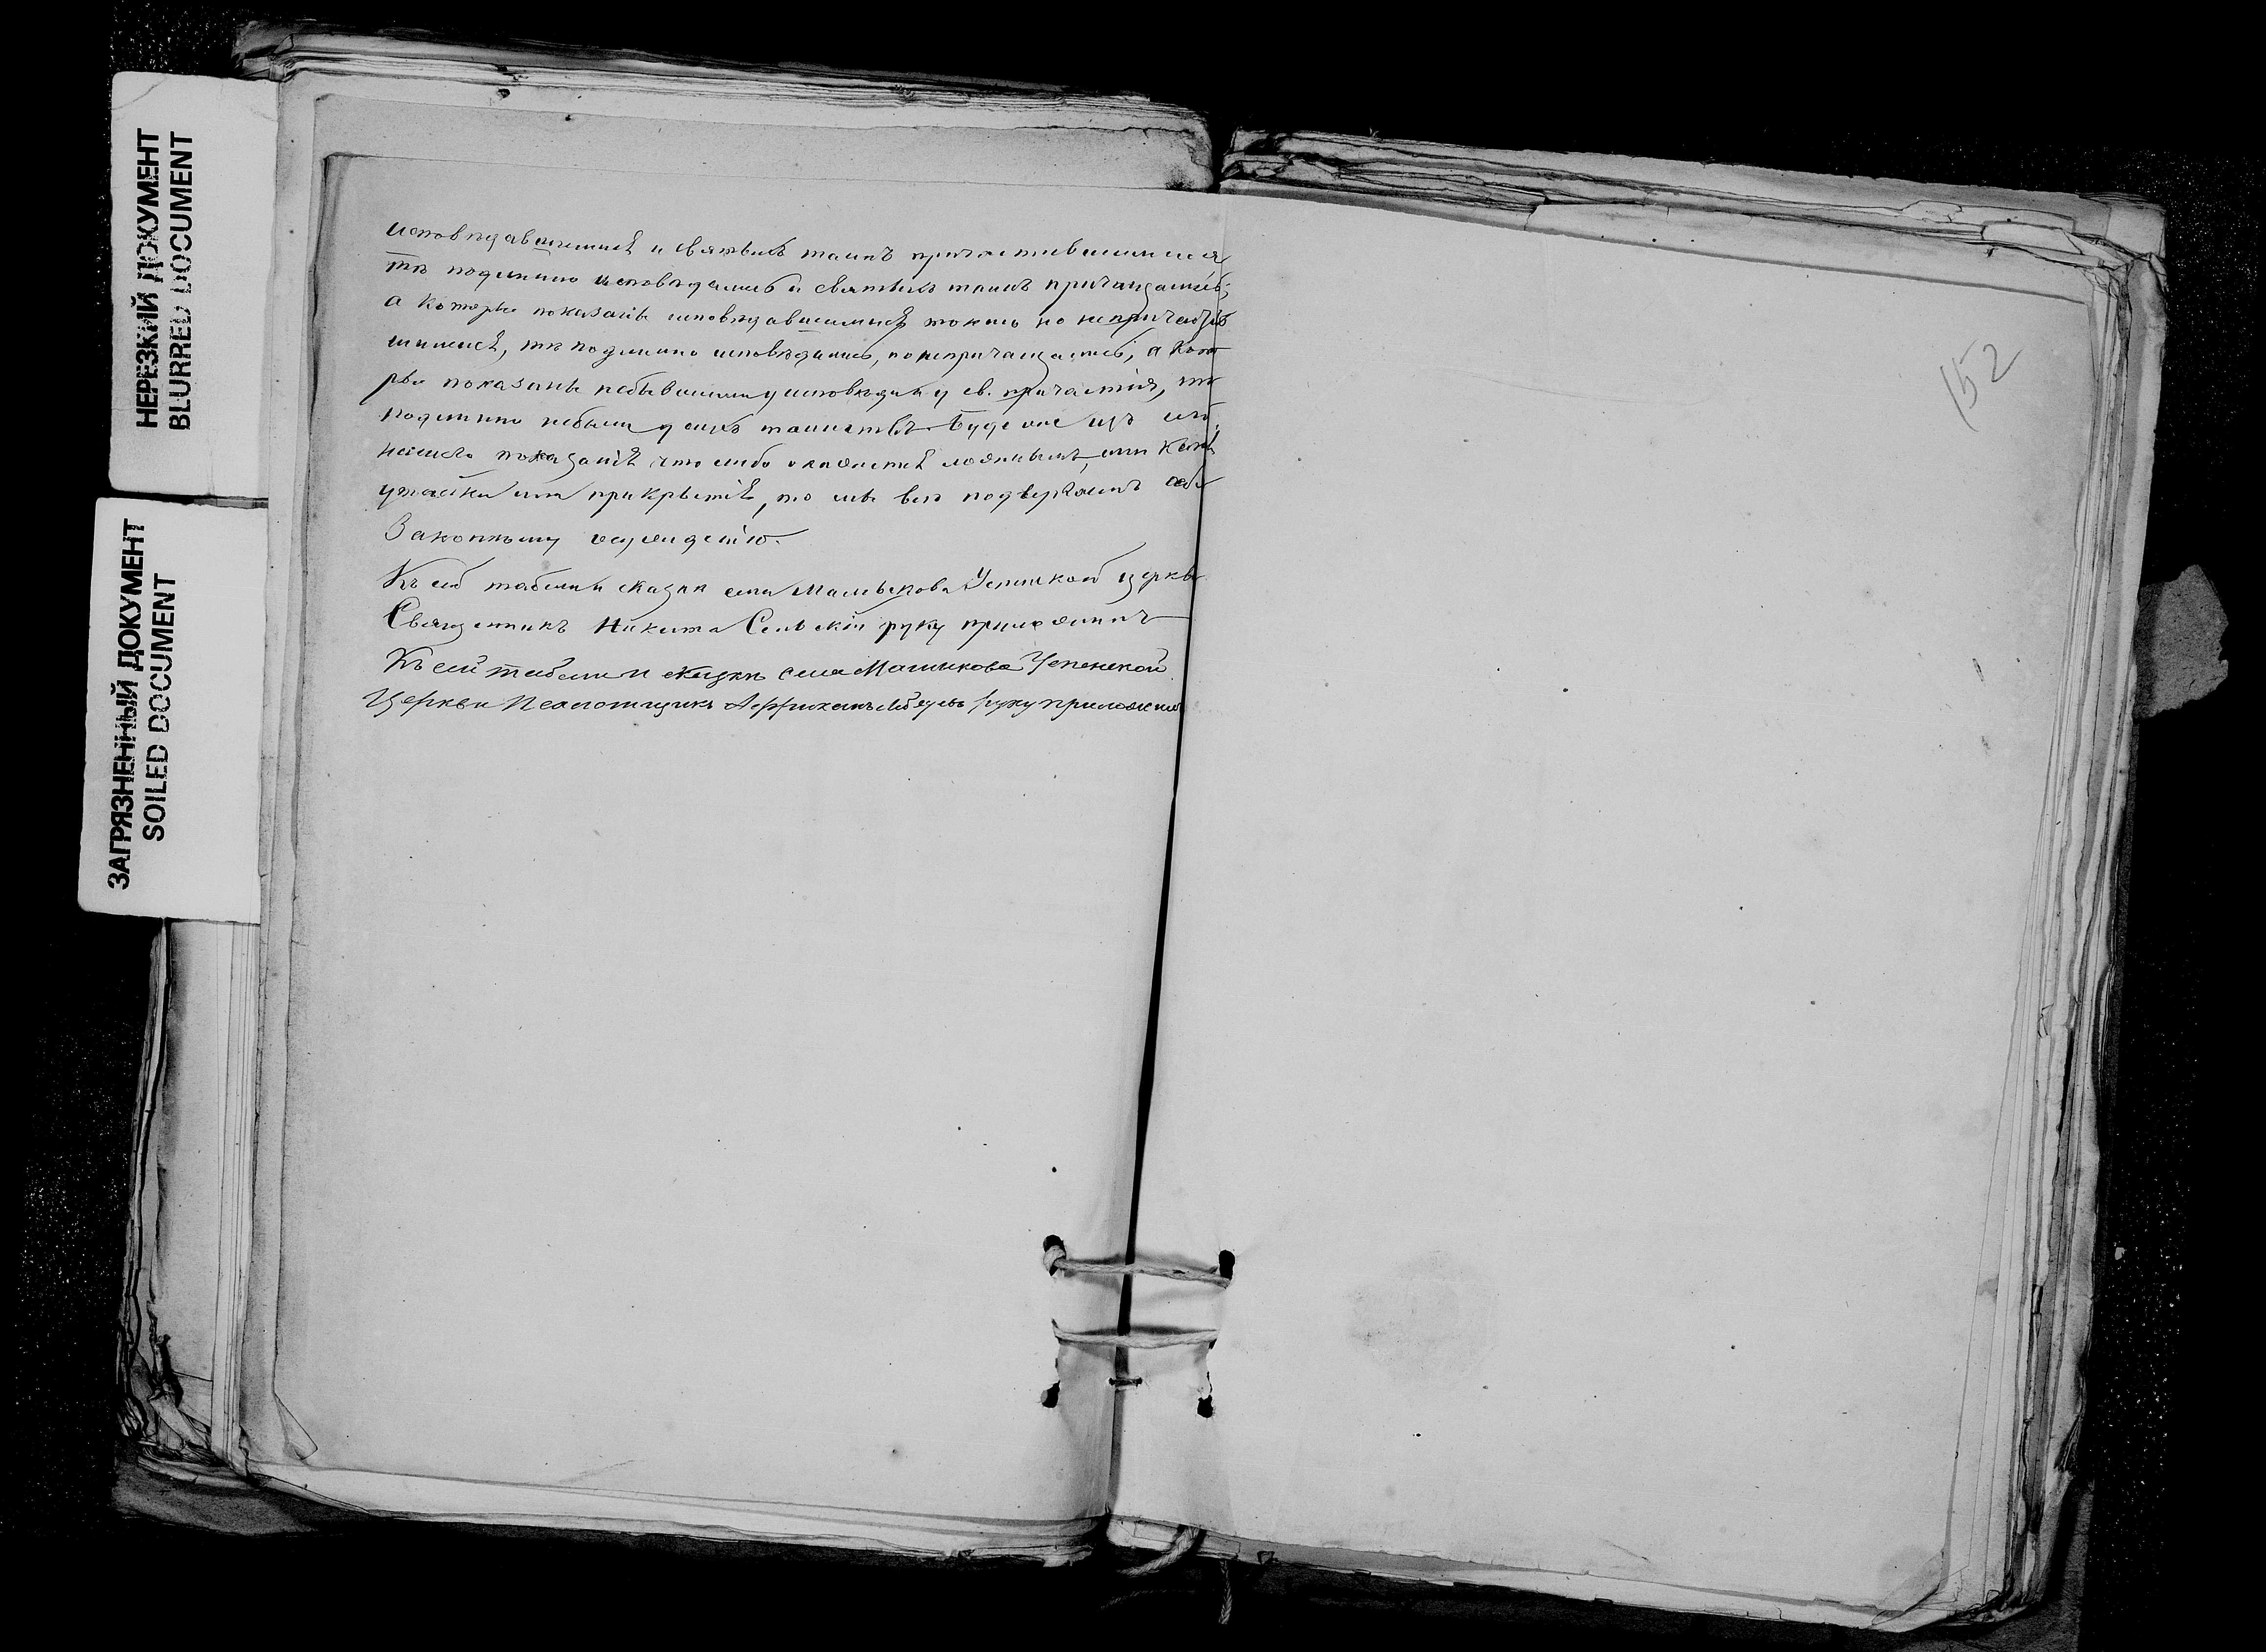 НЕРЕЗКИЙ ДОКУМЕНТ
BLURRED DOCUMENT
ЗАГРЯЗНЕННЫЙ ДОКУМЕНТ
SOILED DOCUMENT
исповѣдавшимися и святыхъ таинъ причастившимися
тѣ подлинно исповѣдались и святыхъ таинъ причащались;
а которые показаны исповѣдавшимися токмо но непричастив
шимися, тѣ подлинно исповѣдались, но непричащались; а кото
рые показаны небывшими у исповѣди и у св. причастія, тѣ
подлинно небыли у сихъ таинствъ. Буде же изъ сего
нашего показанія что либо окажется ложнымъ, или какъ
утайки или прикрытіе, то мы все подвергаемъ себя
Законному осужденію.
Къ сей табели и сказкѣ села Церкви
Священникъ Никита руку приложилъ
Къ сей табели и сказкѣ села Машикова Успенской
Церкви Псаломщикъ руку приложилъ
152